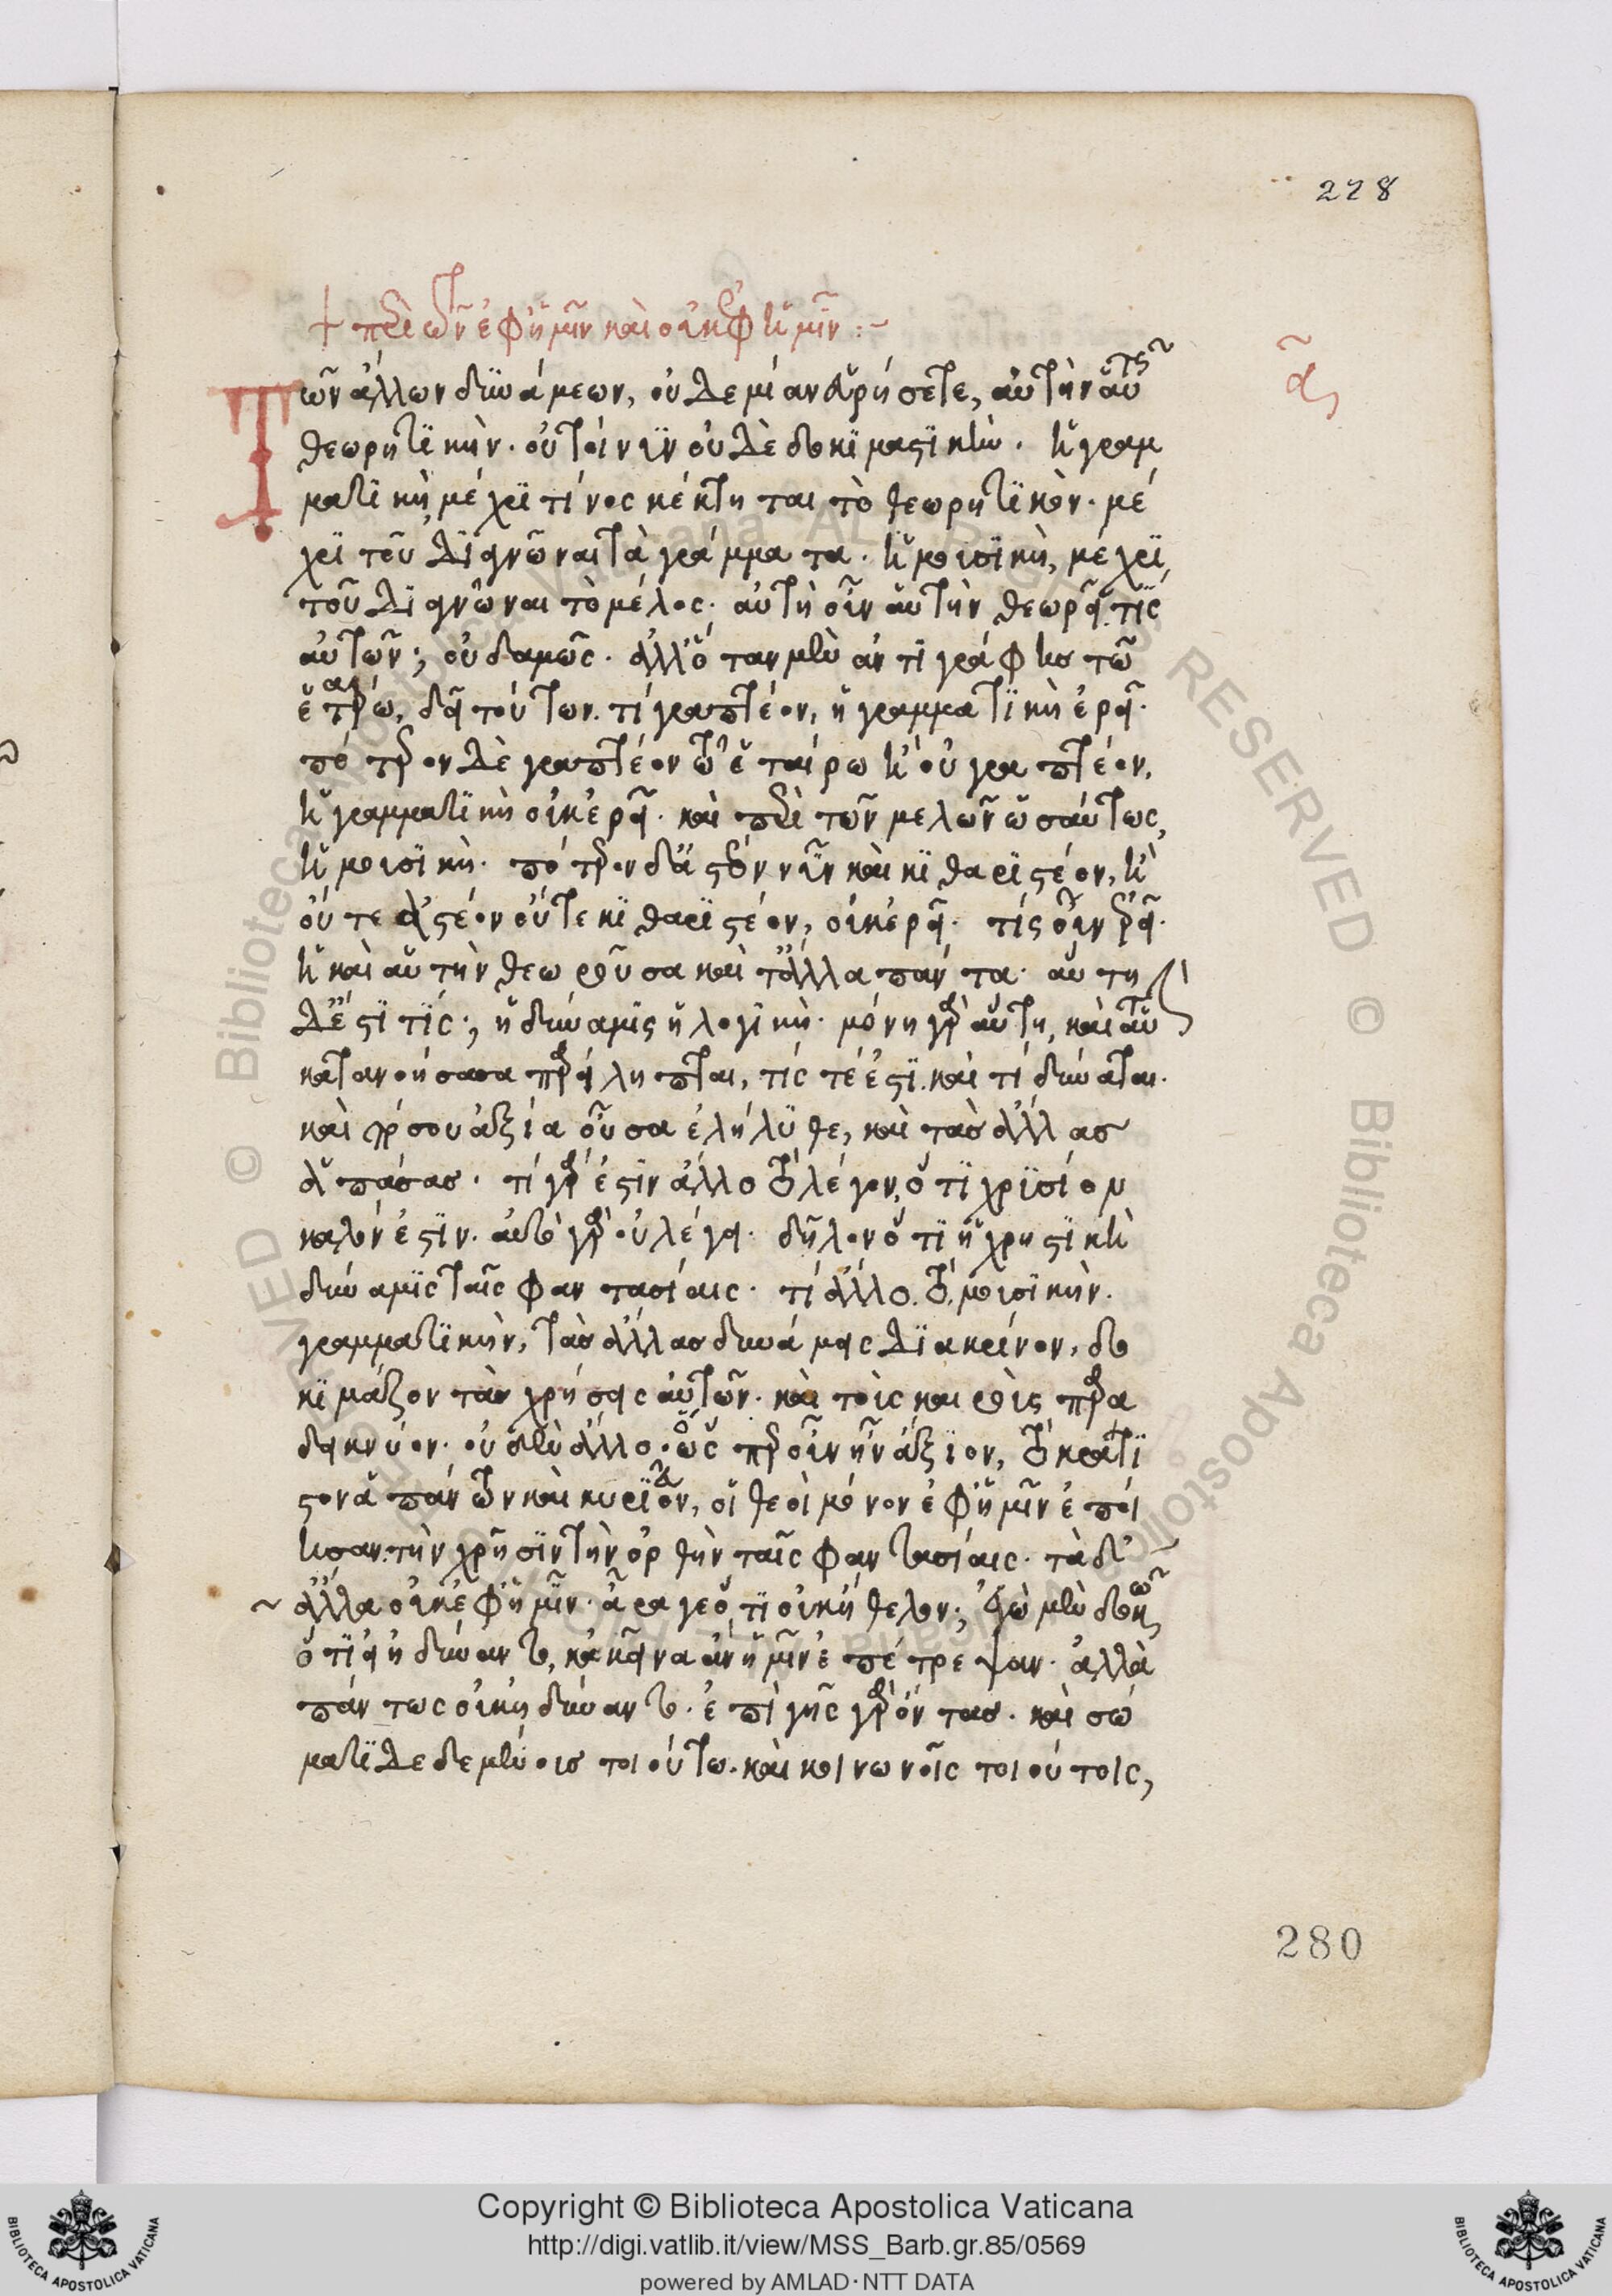 228
+ περὶ τῶν ἐφ' ἡμῖν καὶ οὐκ ἐφ' ἡμῖν :~
α
Τῶν ἄλλων δυνάμεων, οὐδεμίαν εὑρήσετε, αὐτὴν αὑτῆς
θεωρητικήν. οὐ τοίνυν οὐδὲ δοκιμαστικήν. ἡ γραμ
ματικὴ μέχρι τίνος κέκτηται τὸ θεωρητικόν. μέ
χρι τοῦ διαγνῶναι τὰ γράμματα. ἡ μουσικὴ, μέχρι
τοῦ διαγνῶναι τὸ μέλος. αὐτὴ οὖν αὑτὴν θεωρεῖ τίς
αὐτῶν; οὐδαμῶς. ἀλλ' ὅταν μὲν ἄν τι γράφης τῶ
ἑταίρω, δεῖ τούτων. τί γραπτέον, ἡ γραμματικὴ ἐρεῖ.
πότερον δὲ γραπτέον τῶ ἑταίρω ἢ οὐ γραπτέον,
ἡ γραμματικὴ οὐκ ἐρεῖ. καὶ περὶ τῶν μελῶν ὡσαύτως,
ἡ μουσικὴ. πότερον δ' ἀστέον νῦν καὶ κιθαριστέον, ἢ
οὔτε ἀστέον οὔτε κιθαριστέον, οὐκ ἐρεῖ. τίς οὖν ἐρεῖ.
ἡ καὶ αὑτὴν θεωροῦσα καὶ τἄλλα πάντα. αὕτη
δ' ἔστι τίς; ἡ δύναμις ἡ λογικὴ. μόνη γὰρ αὕτη, καὶ αὑτὴν
κατανοήσασα παρείληπται, τίς τέ ἐστι. καὶ τί δύναται.
καὶ πόσου ἀξία οὖσα ἐλήλυθε, καὶ τὰς ἄλλας
ἁπάσας. τί γάρ ἐστιν ἄλλο τὸ λέγον, ὅτι χρυσίον
καλόν ἐστιν. αὐτὸ γὰρ οὐ λέγει. δῆλον ὅτι ἡ χρηστικὴ
δύναμις ταῖς φαντασίαις. τί ἄλλο. τὸ μουσικήν.
γραμματικὴν, τὰς ἄλλας δυνάμεις διακρίνον, δο
κιμάζον τὰς χρήσεις αὐτῶν. καὶ τοὺς καιροὺς παρα
δεικνύον. οὐδὲν ἄλλο. ὥσπερ οὖν ἦν ἄξιον, τὸ κράτι
στον ἁπάντων καὶ κυριεῦον, οἱ θεοὶ μόνον ἐφ' ἡμῖν ἐποί
ησαν. τὴν χρῆσιν τὴν ὀρθὴν ταῖς φαντασίαις. τὰ δ'
ἄλλα οὐκ ἐφ' ἡμῖν. ἆρά γε ὅτι οὐκ ἤθελον; ἐγὼ μὲν δοκῶ
ὅτι εἰ ἠδύναντο, κἀκεῖνα ἂν ἡμῖν ἐπέτρεψαν. ἀλλὰ
πάντως οὐκ ἠδύναντο. ἐπὶ γῆς γὰρ ὄντας. καὶ σώ
ματι δεδεμένοις τοιούτω. καὶ κοινωνοῖς τοιούτοις,
280
© Biblioteca Apostolica Vaticana - ALL RIGHTS RESERVED
Copyright © Biblioteca Apostolica Vaticana
http://digi.vatlib.it/view/MSS_Barb.gr.85/0569
powered by AMLAD·NTT DATA
BIBLIOTECA APOSTOLICA VATICANA
BIBLIOTECA APOSTOLICA VATICANA